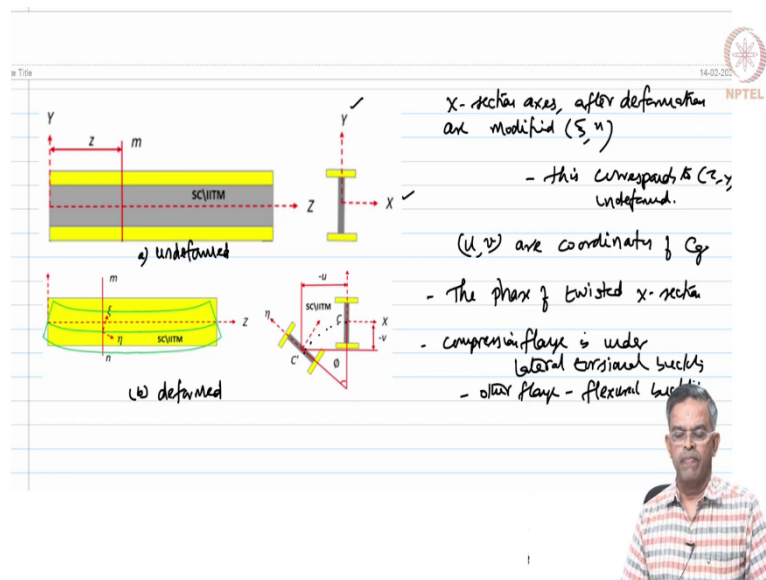 e Title
14-02-202
NPTEL
Y
z
m
SC\IITM
Z
a) undeformed
Y
X
m
ξ
Z
η
SC\IITM
n
(b) deformed
-u
SC\IITM
η
C
X
-v
C'
Ø
x-section axes, after deformation
are modified (ξ, η)
- this corresponds to (x, y)
undeformed.
(u, v) are coordinates of Cg
- The phase of twisted x-section
- compression flange is under
lateral torsional
- other flange - flexural